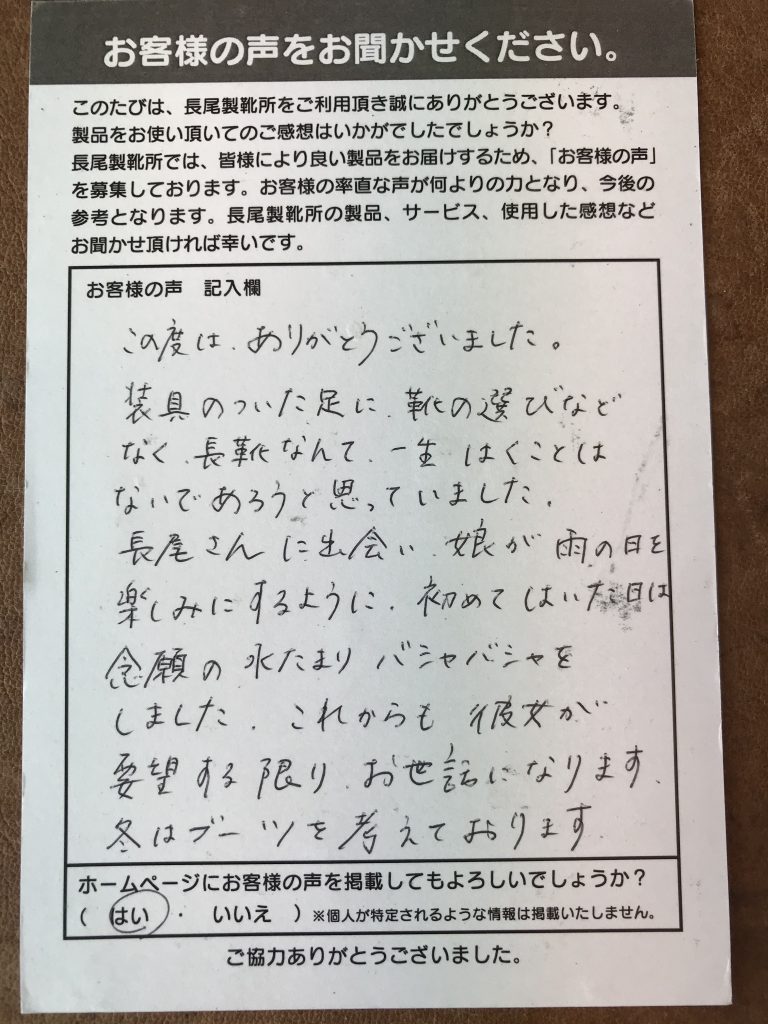 お客様の声をお聞かせください。
このたびは、長尾製靴所をご利用頂き誠にありがとうございます。
製品をお使い頂いてのご感想はいかがでしたでしょうか?
長尾製靴所では、皆様により良い製品をお届けするため、「お客様の声」
を募集しております。お客様の率直な声が何よりの力となり、今後の
参考となります。長尾製靴所の製品、サービス、使用した感想など
お聞かせ頂ければ幸いです。
お客様の声 記入欄
この度は、ありがとうございました。
装具のついた足に、靴の選びなど
なく、長靴なんて、一生 はくことは
ないであろうと思っていました。
長尾さんに出会い、娘が雨の日を
楽しみにするように、初めてはいた日は
念願の水たまりバシャバシャを
しました。これからも彼女が
要望する限り、お世話になります。
冬はブーツを考えております。
ホームページにお客様の声を掲載してもよろしいでしょうか?
( はい ・ いいえ ) ※個人が特定されるような情報は掲載いたしません。
ご協力ありがとうございました。